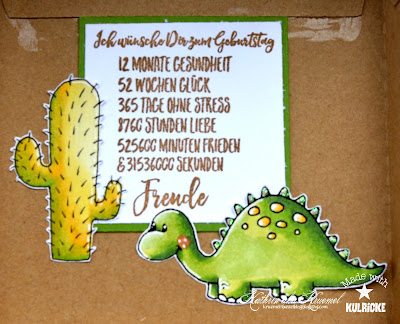 Ich wünsche Dir zum Geburtstag
12 MONATE GESUNDHEIT
52 WOCHEN GLÜCK
365 TAGE OHNE STRESS
8760 STUNDEN LIEBE
525600 MINUTEN FRIEDEN
& 31536000 SEKUNDEN
Freude
Made with
KULRiCKE